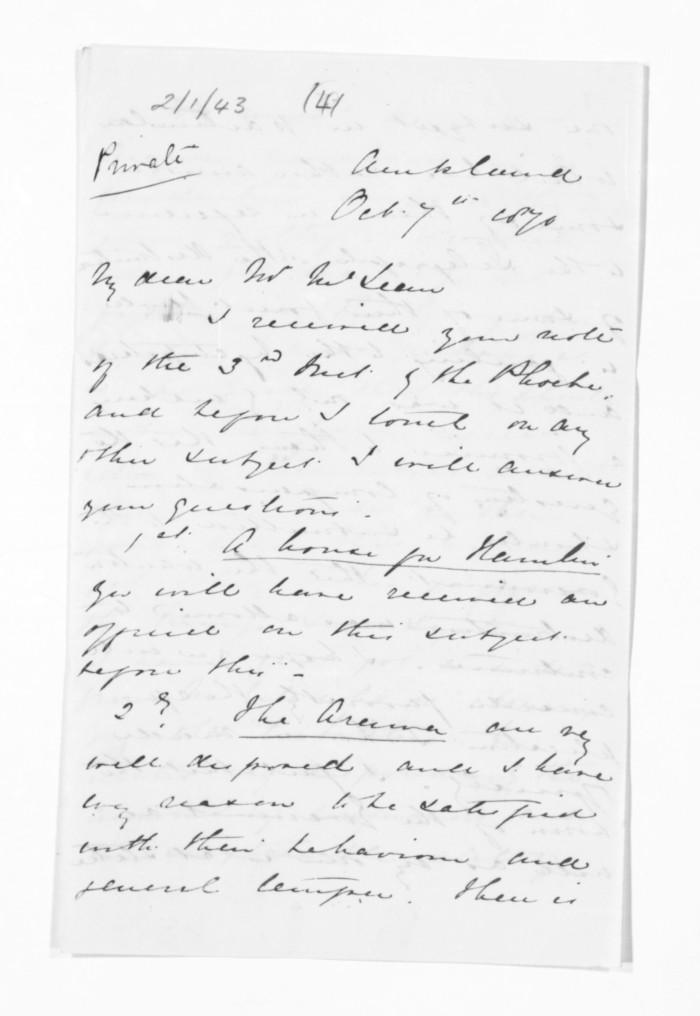 2/1/43 (4)
Private
Auckland
Oct. 7th 1870
My dear Mr McLean
I received your note
of the 3rd Inst. by the Phoebe,
and before I touch on any
other subject I will answer
your questions.
1st. A house for Hamlin
you will have received an
official on this subject
before this -
2d. The Arawa are very
well disposed and I have
every reason to be satisfied
with their behaviour and
general temper. There is